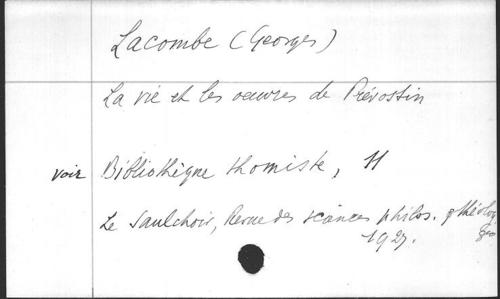 Lacombe (Georges)
La vie et les oeuvres de Prévostin
voir Bibliothèque thomiste, 11
Le Saulchoir, Revue des sciences philos. & théolog
1927.